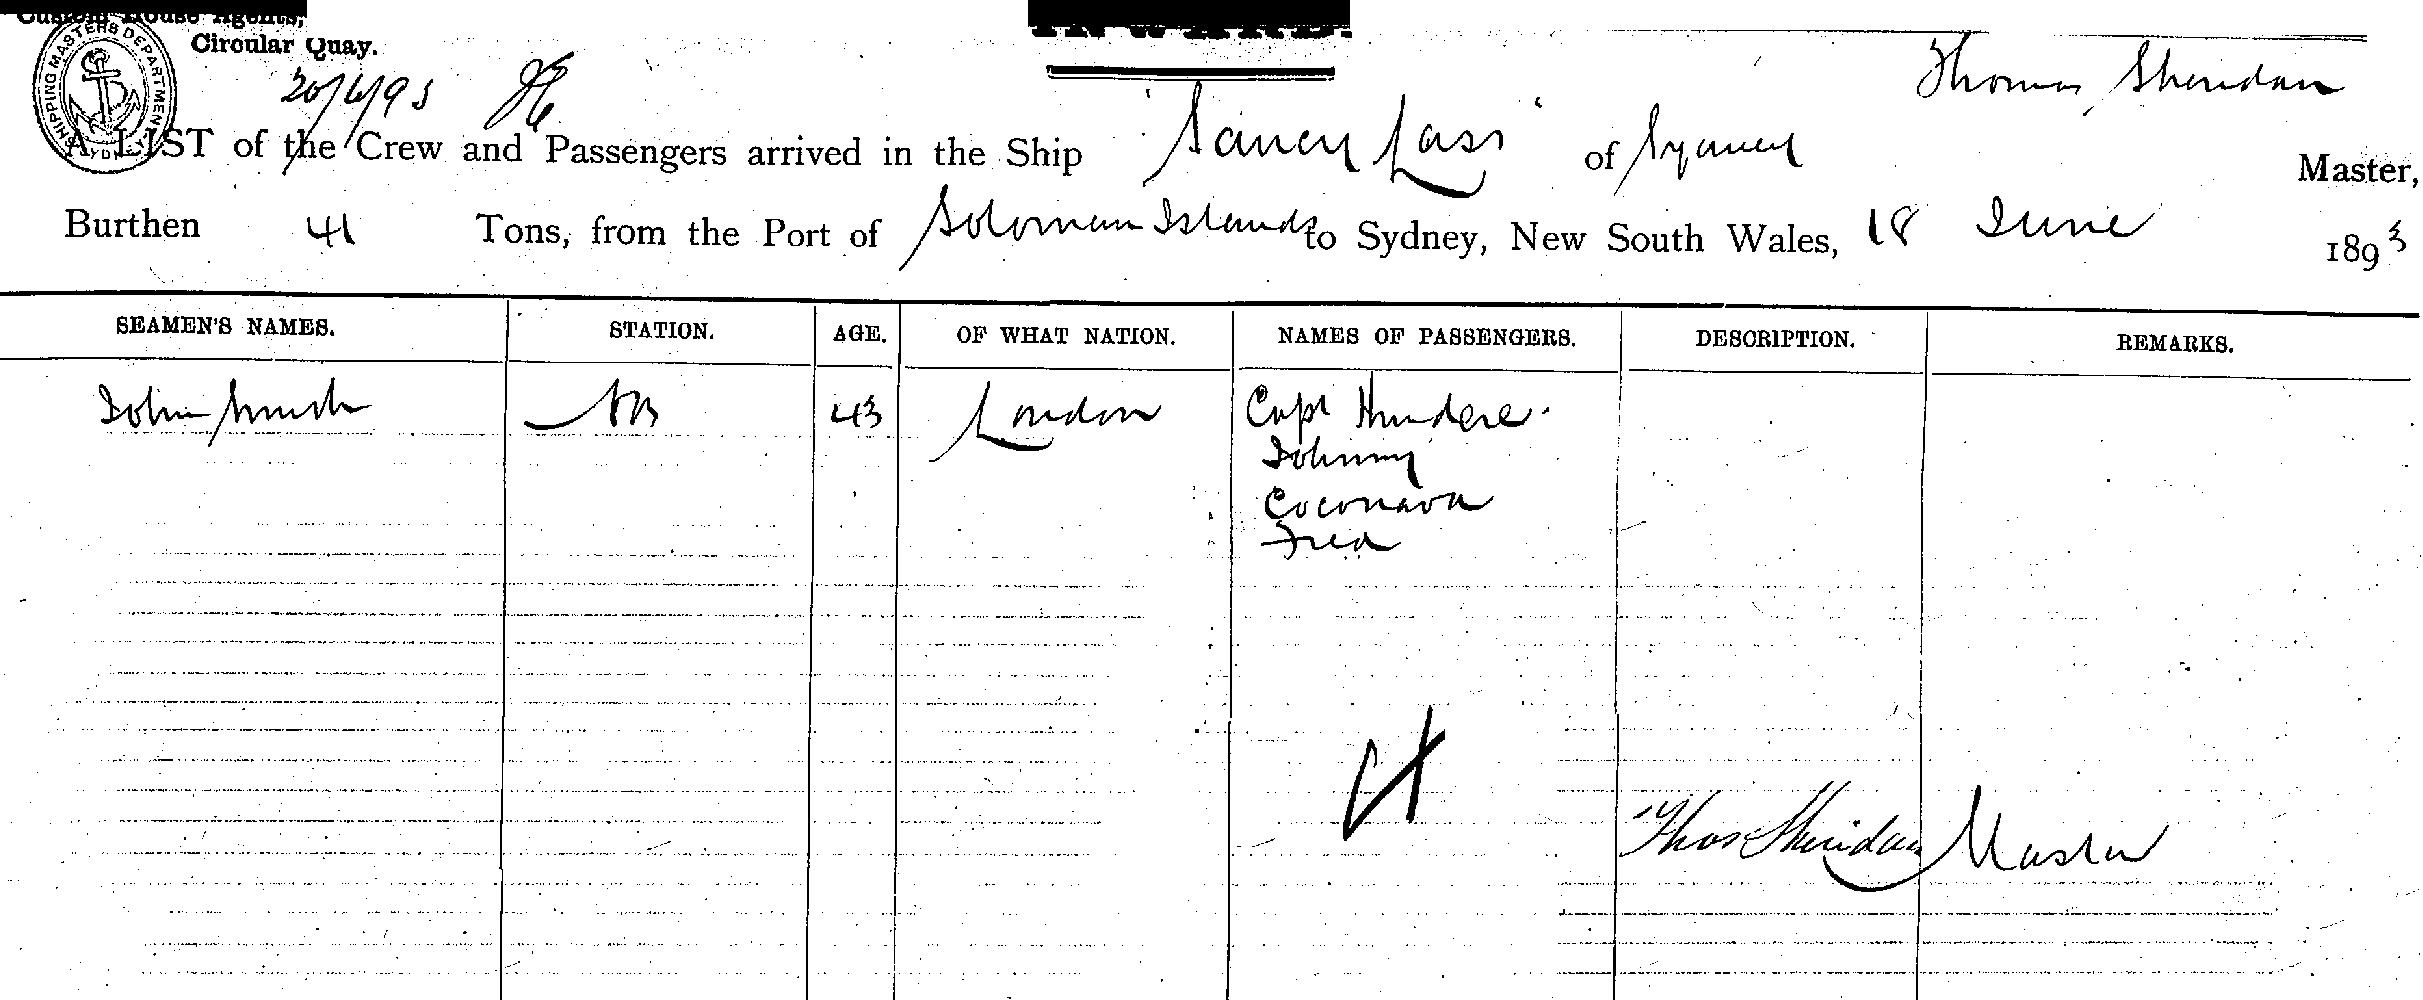 Custom House Agents,
Circular Quay.
SHIPPING MASTERS DEPARTMENT SYDNEY
INWARD.
20/6/93
Thomas Sheridan
A LIST of the Crew and Passengers arrived in the Ship "Saucy Lass" of Sydney Master,
Burthen 41 Tons, from the Port of Soloman Islands to Sydney, New South Wales, 18 June 1893
SEAMEN'S NAMES. STATION. AGE. OF WHAT NATION. NAMES OF PASSENGERS. DESCRIPTION. REMARKS.
John Smith AB 43 London Capt
Johnny
Coconava
Fred
Thos Sheridan Master